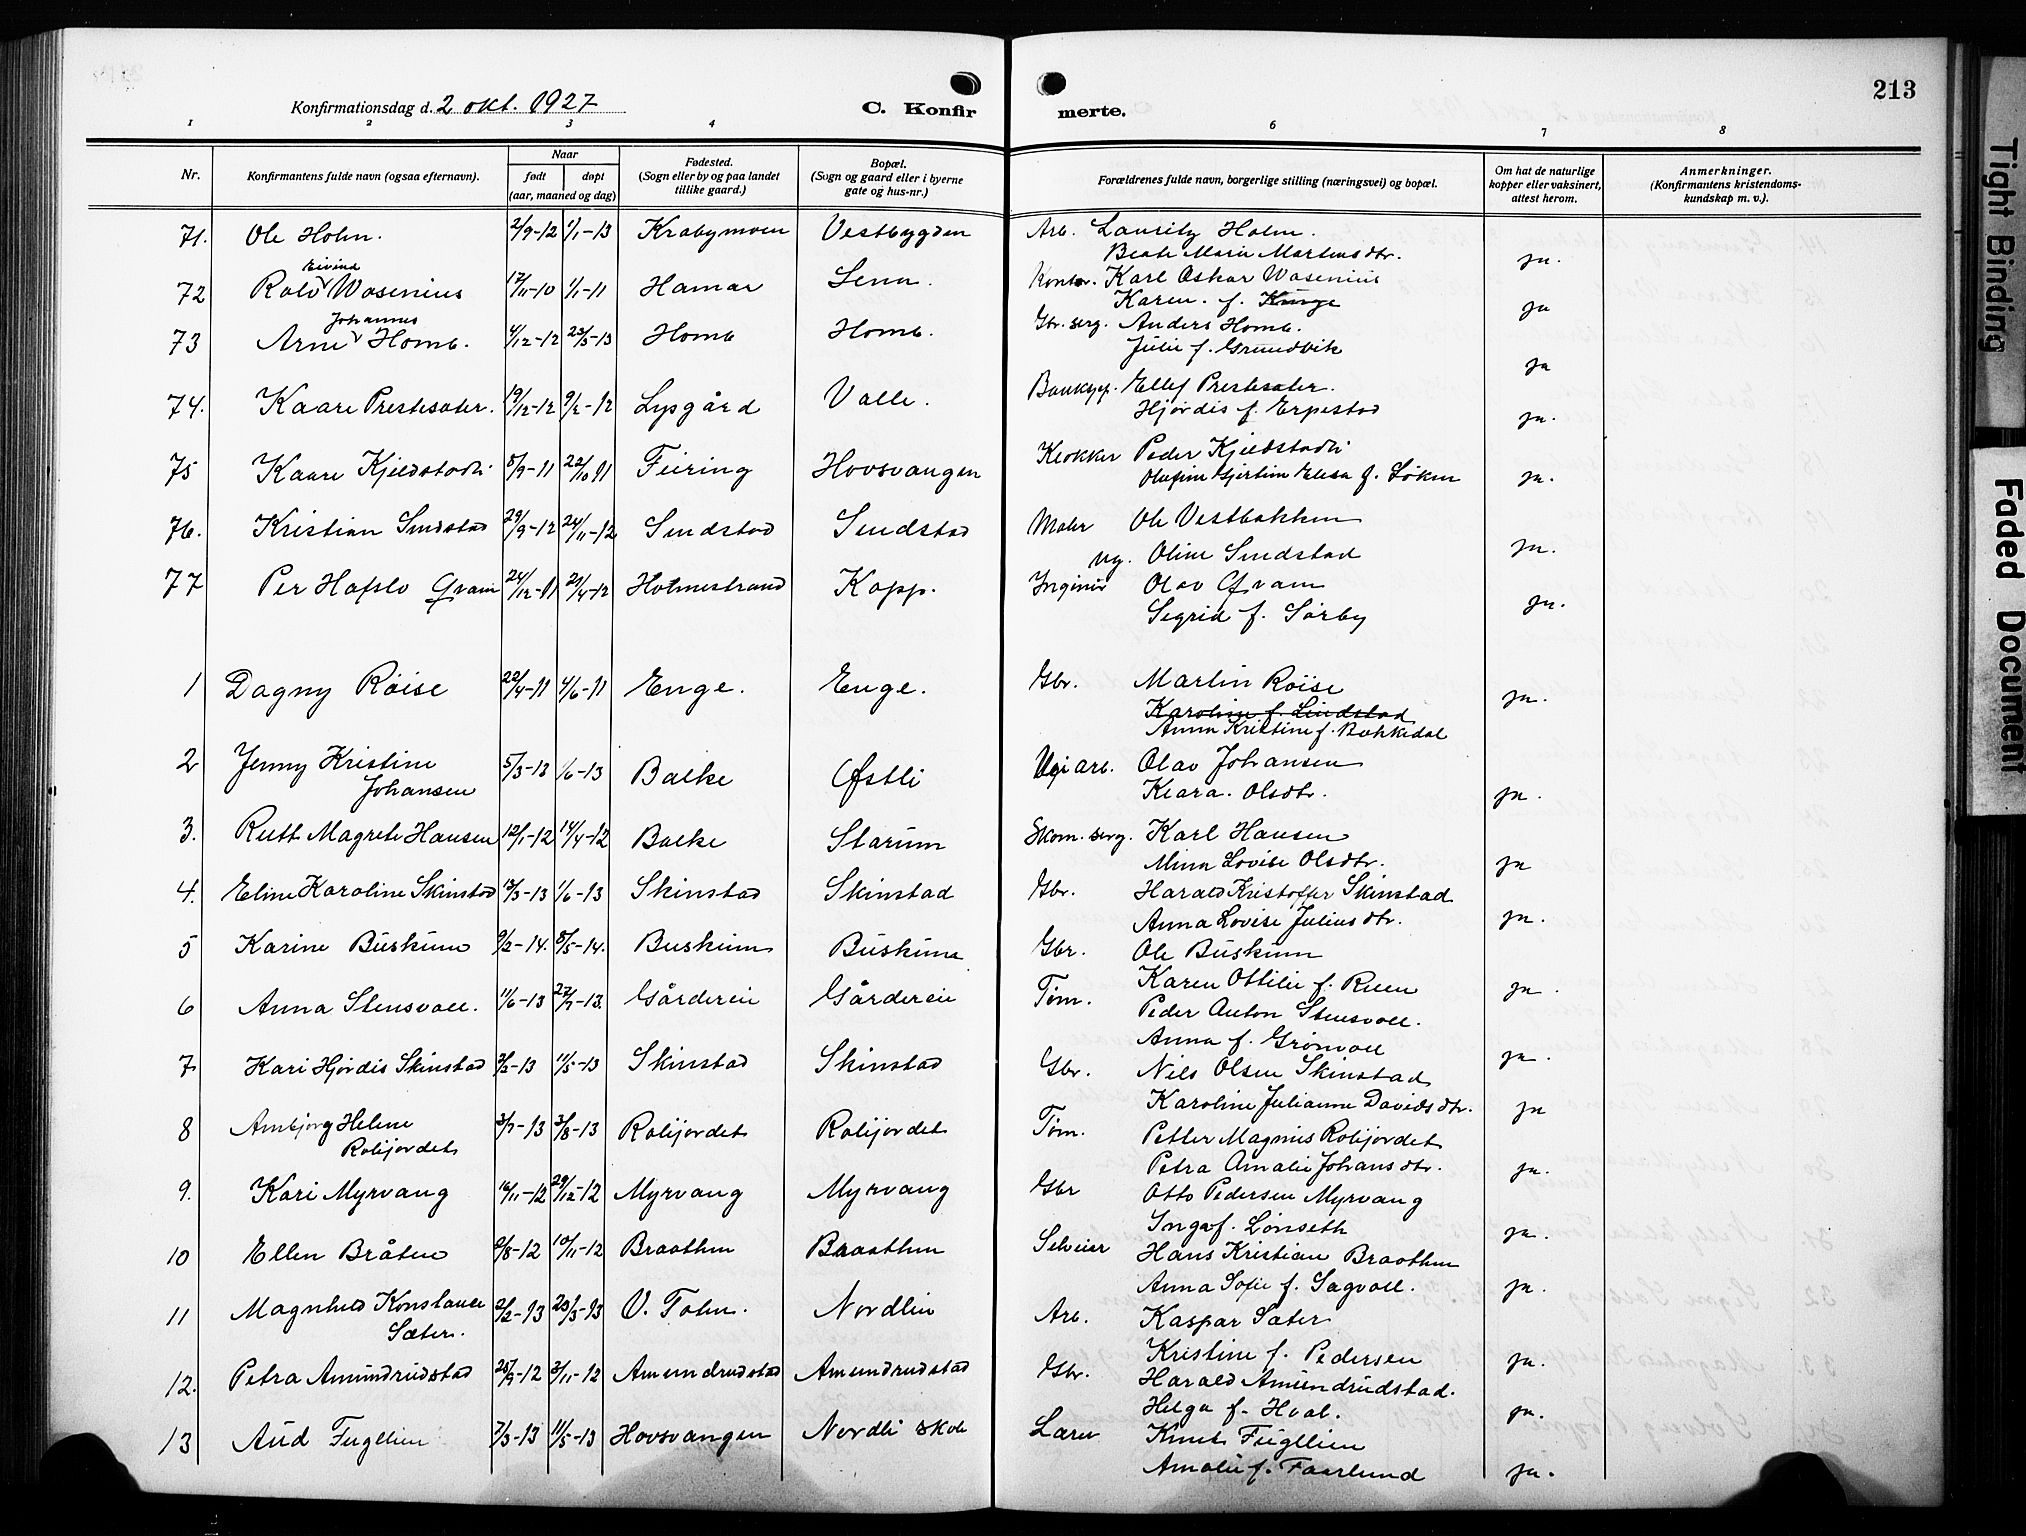 213
Konfirmationsdag d. 2 okt. 1927
C. Konfir merte.
1 2 3 4 6 7 8
Nr. Konfirmantens fulde navn (ogsaa efternavn). Naar født døpt (aar, maaned og dag) Fødested. (Sogn eller by og paa landet tillike gaard.) Bopæl. (Sogn og gaard eller i byerne gate og hus-nr.) Forældrenes fulde navn, borgerlige stilling (næringsvei) og bopæl. Om hat de naturlige kopper eller vaksinert, attest herom. Anmerkninger. (Konfirmantens kristendoms-kundskap m. v.).
71. Ole Holm. 2/9-12 1/1-13 Krabymoen Vestbygden Arb. Lauritz Holm.
Beate Marie Martinsdtr. ja.
72 Rolv Eivind Wasenius 17/11-10 1/1-11 Hamar Lena. Kontor. Karl Oskar Wasenius
Karen. f. Kunge ja
73 Arne Johannes Homb. 4/12-12 23/3-13 Homb Homb. Gbr. serg. Anders Homb.
Julie f. Grundvik ja
74. Kaare Prestesæter. 19/12-12 9/2-12 Lysgård Valle. Ellef Prestesæter.
Hjørdis f. Erpestad ja.
75 Kaare Kjeldstadli 5/9-11 22/10-11 Feiring Hovsvangen Klokker Peder Kjeldstadli
Olufine Gjertine Elisa f. Løken ja.
76. Kristian Smedstad 29/9-12 24/11-12 Smedstad Smedstad Maler Ole Vestbakken
ug. Oline Smedstad ja.
77 Per Hafslo Qvam 24/12-11 21/4-12 Holmestrand Kapp. Ingeniør Olav Qvam
Sigrid f. Sørby ja.
1 Dagny Røise 22/4-11 4/6-11 Enge. Enge. Gbr. Martin Røise
Karoline f. Lindstad ja.
Anna Kristine f. Bækkedal
2 Jenny Kristine Johansen 5/3-13 1/6-13 Balke Østli Olav Johansen
Klara. Olsdtr. ja.
3. Ruth Magrete Hansen 12/1-12 14/4-12 Balke Starum Skom. serg. Karl Hansen
Mina Lovise Olsdtr. ja
4. Eline Karoline Skinstad 13/3-13 1/6-13 Skinstad Skinstad Gbr. Harald Kristoffer Skinstad
Anna Lovise Juliusdtr. ja.
5 Karine Buskum 9/2-14. 8/5-14. Buskum Buskum Gbr. Ole Buskum
Karen Ottilie f. Ruen ja.
6 Anna Stensvoll. 11/6-13 27/7-13. Gårdereie Gårdereie Tøm. Peder Anton Stensvoll.
Anna f. Grønvoll ja.
7 Kari Hjørdis Skinstad 2/2-13 11/5-13 Skinstad Skinstad Gbr. Nils Olsen Skinstad
Karoline Julianne Davidsdtr. ja
8 Ambjørg Helene Rolijordet 3/7-13 3/8-13 Rolijordet Rolijordet Tøm. Petter Magnus Rolijordet
Petra Amalie Johansdtr. ja.
9. Kari Myrvang 16/11-12 29/12-12 Myrvang Myrvang Gbr Otto Pedersen Myrvang
Inga f. Lønseth ja.
10 Ellen Bråten 2/8-12 10/11-12 Braathen Braathen Selveier Hans Kristian Braathen
Anna Sofie f. Sagvoll. ja.
11 Magnhild Konstance Sæter. 2/2-13 23/3-13 V. Toten. Nordlien Arb. Kaspar Sæter
Kristine f. Pedersen ja.
12. Petra Amundrudstad 25/9-12 3/11-12 Amundrudstad Amundrudstad Gbr. Harald Amundrudstad.
Helga f. Hval. ja.
13 Aud Fugllien 7/3-13 11/5-13 Hovsvangen Nordli skole Lærer Knut Fuglien
Amalie f. Faarlund ja.
Tight Binding
Faded Document